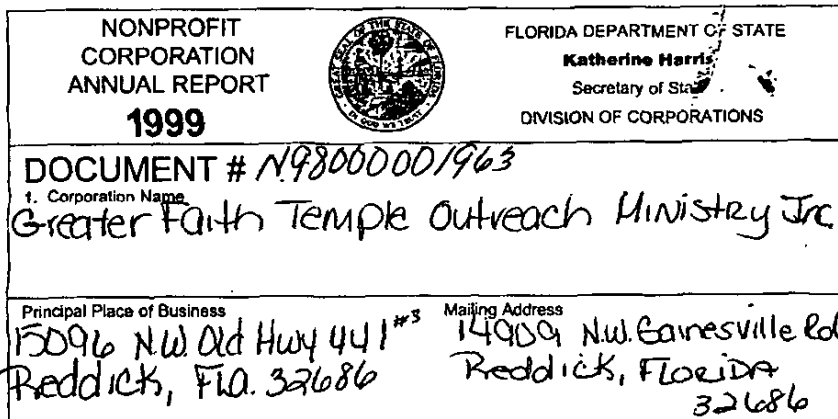 NONPROFIT
CORPORATION
ANNUAL REPORT
1999
GREAT SEAL OF THE STATE OF FLORIDA
IN GOD WE TRUST
FLORIDA DEPARTMENT OF STATE
Katherine Harris
Secretary of State
DIVISION OF CORPORATIONS
DOCUMENT # N98000001963
1. Corporation Name
Greater Faith Temple Outreach Ministry Inc
Principal Place of Business
15096 N.W. Old Hwy 441 #3
Reddick, Fla. 32686
Mailing Address
14909 N.W. Gainesville Rd
Reddick, FLORIDA
32686